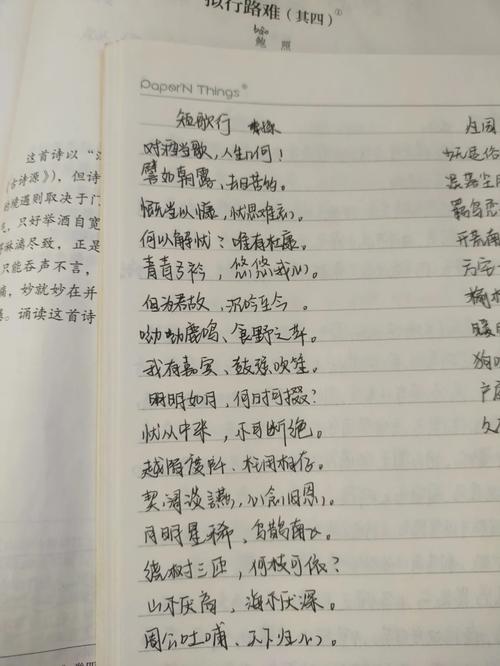 拟行路难（其四）①
bào
鲍 照
这首诗以“
《古诗源》），但诗
的境遇则取决于门
，只好举酒自宽
淋漓尽致，正是
只能吞声不言，
，妙就妙在并
。诵读这首诗
PaperN Things®
短歌行 曹操
对酒当歌，人生几何！
譬如朝露，去日苦多。
慨当以慷，忧思难忘。
何以解忧？唯有杜康。
青青子衿，悠悠我心。
但为君故，沉吟至今。
呦呦鹿鸣、食野之苹。
我有嘉宾、鼓瑟吹笙。
明明如月，何时可掇？
忧从中来，不可断绝。
越陌度阡、枉用相存。
契阔谈讌，心念旧恩。
月明星稀，乌鹊南飞。
绕树三匝，何枝可依？
山不厌高，海不厌深。
周公吐哺、天下归心。
归园
少无适俗
误落尘网
羁鸟恋
开荒南
方宅十
榆柳
暧暧
狗吠
户庭
久